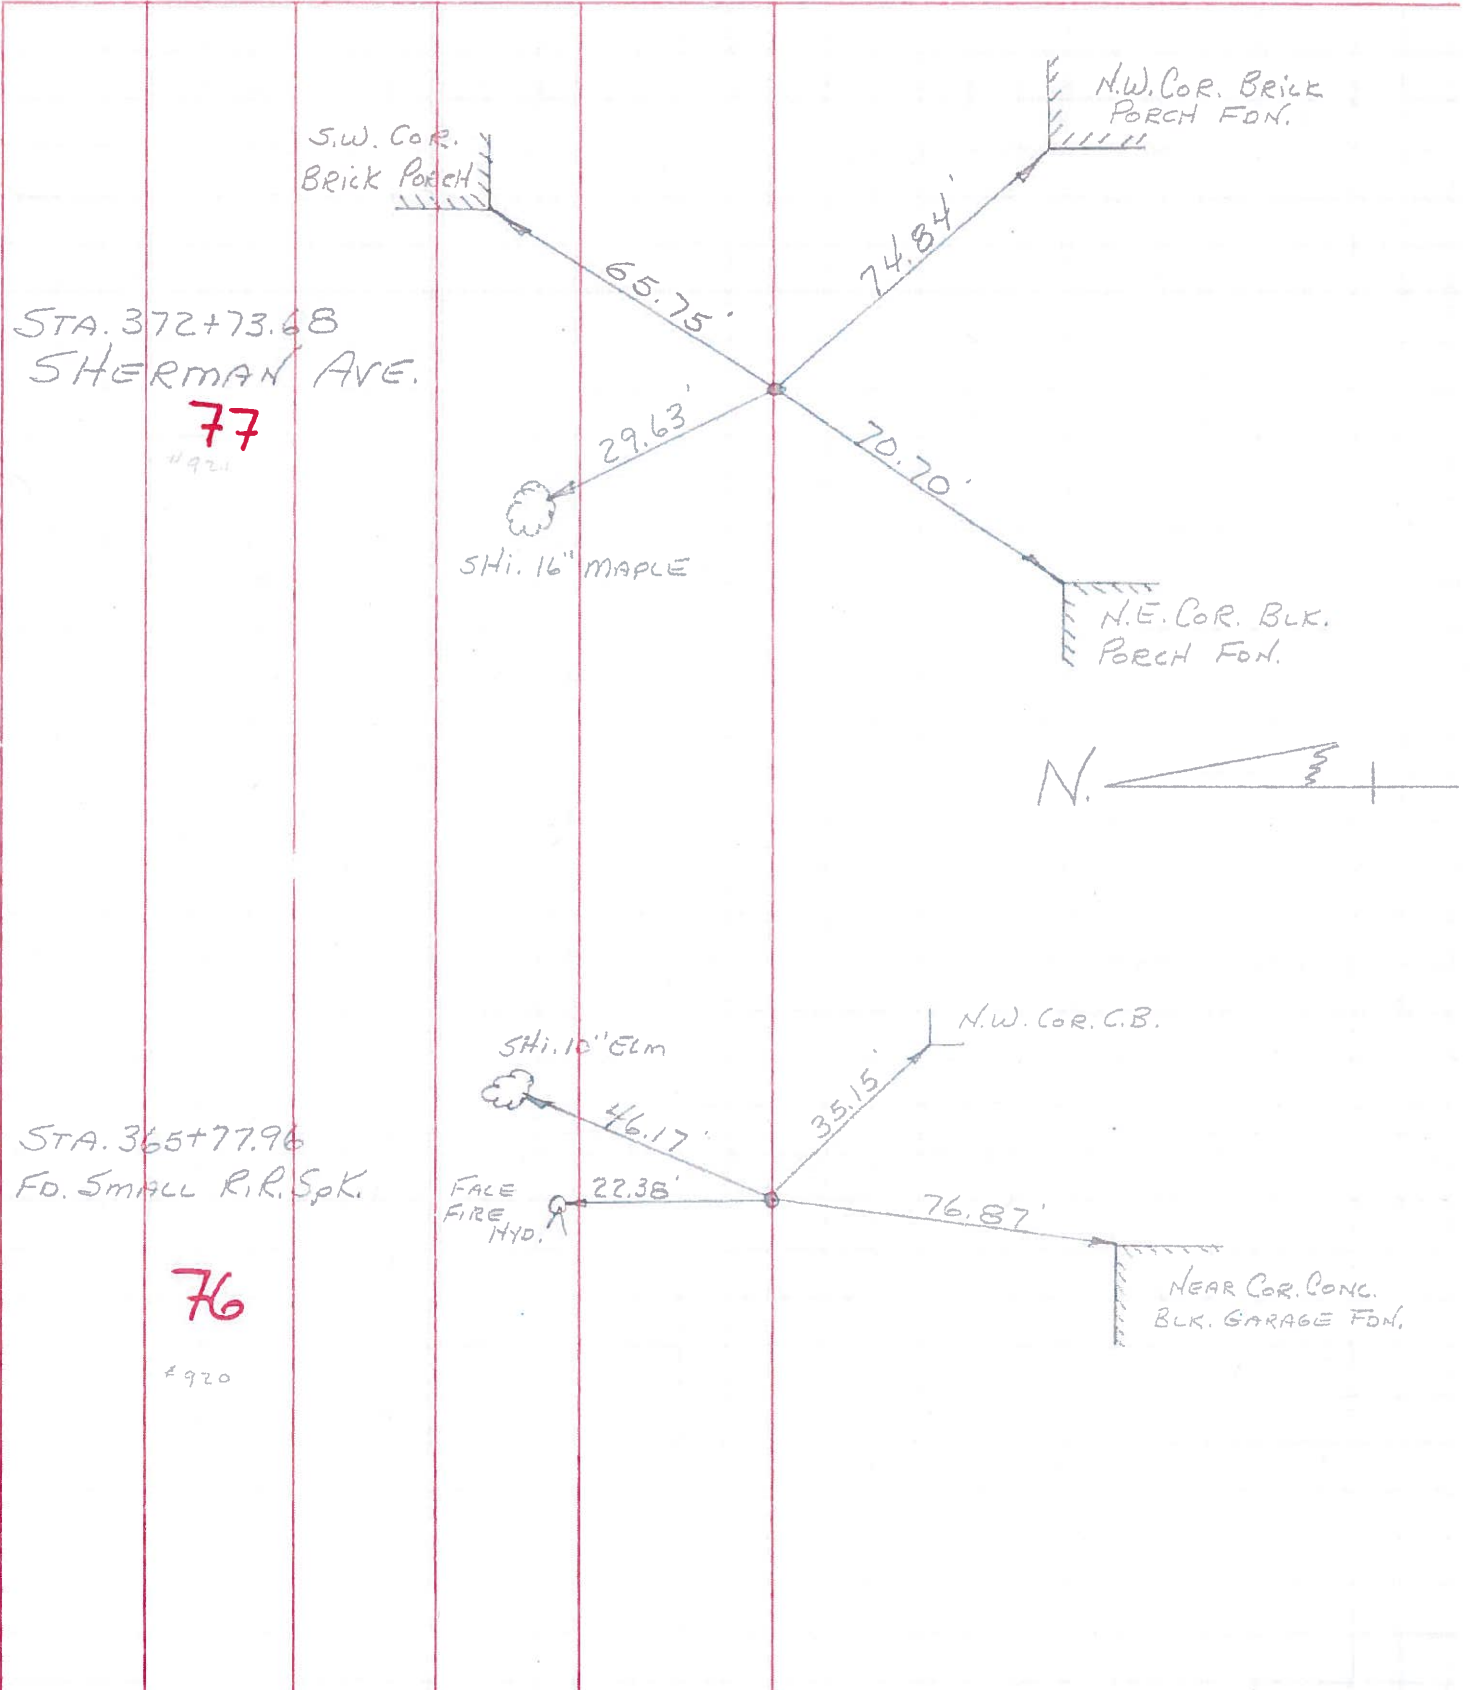 N.W. COR. BRICK
PORCH FDN.
S.W. COR.
BRICK PORCH
74.84'
65.75'
STA. 372+73.68
SHERMAN AVE.
77
29.63'
70.70'
SHI. 16" MAPLE
N.E. COR. BLK.
PORCH FDN.
N.
N.W. COR. C.B.
SHI. 10" ELM
35.15'
46.17'
STA. 365+77.96
FD. SMALL R.R. SPK.
FACE
FIRE
HYD.
22.38'
76.87'
76
NEAR COR. CONC.
BLK. GARAGE FDN.
#920